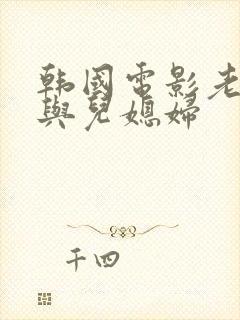 韩國电影老
與兒媳婦
千四